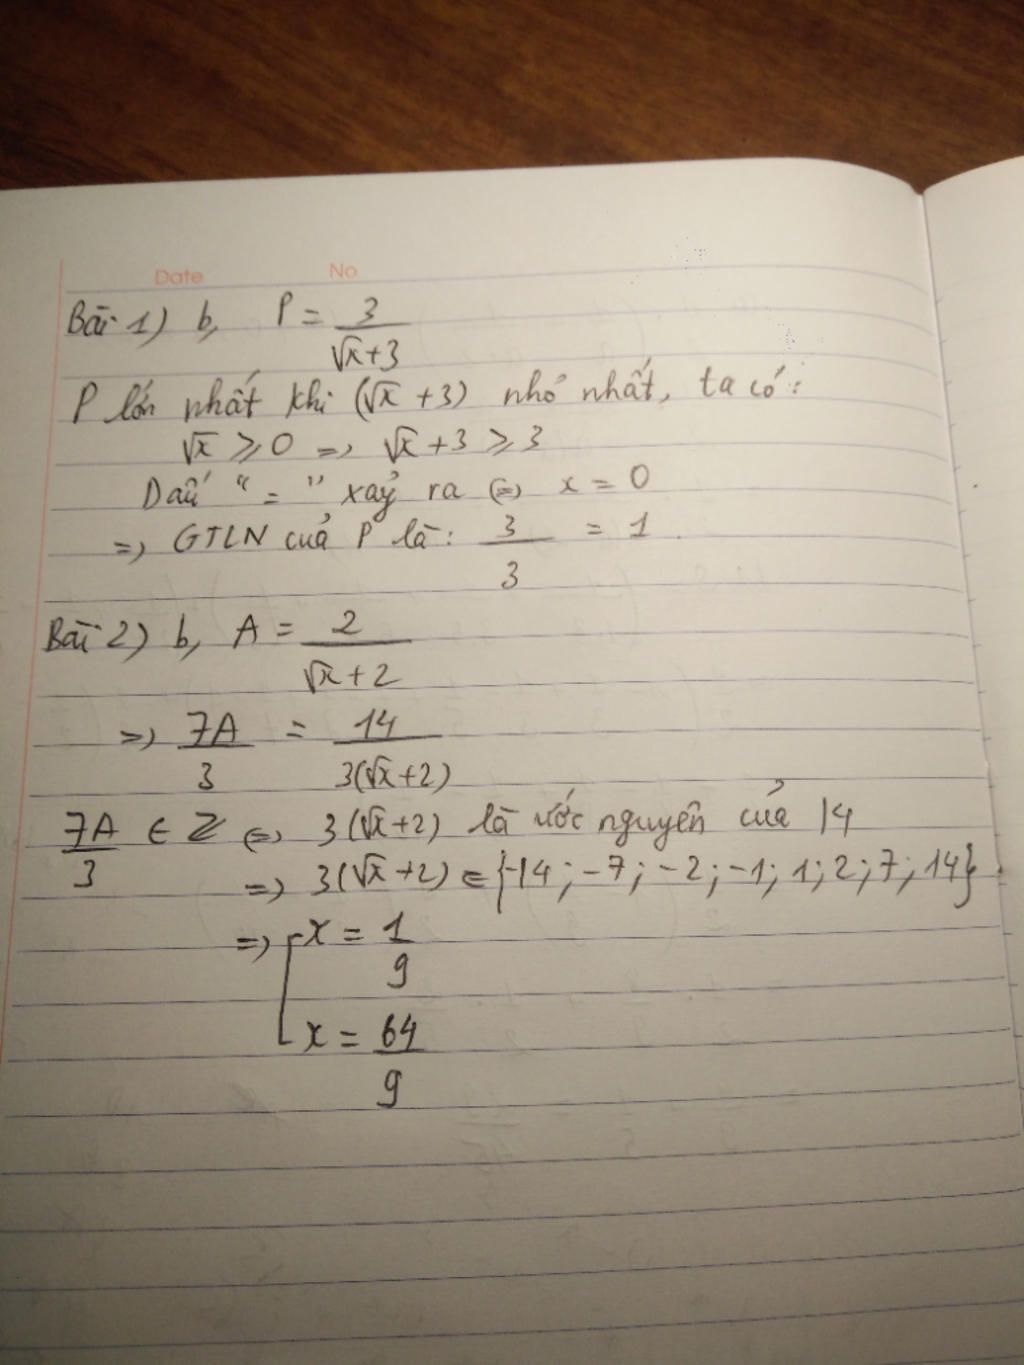 Date No
Bài 1) b, P = 3/(√x+3)
P lớn nhất khi (√x + 3) nhỏ nhất, ta có:
√x ≥ 0 => √x + 3 ≥ 3
Dấu " = " xảy ra <=> x = 0
=> GTLN của P là: 3/3 = 1.
Bài 2) b, A = 2/(√x+2)
=> 7A/3 = 14/(3(√x+2))
7A/3 ∈ Z <=> 3(√x+2) là ước nguyên của 14
=> 3(√x+2) ∈ {-14; -7; -2; -1; 1; 2; 7; 14}
=> [x = 1/9
x = 64/9